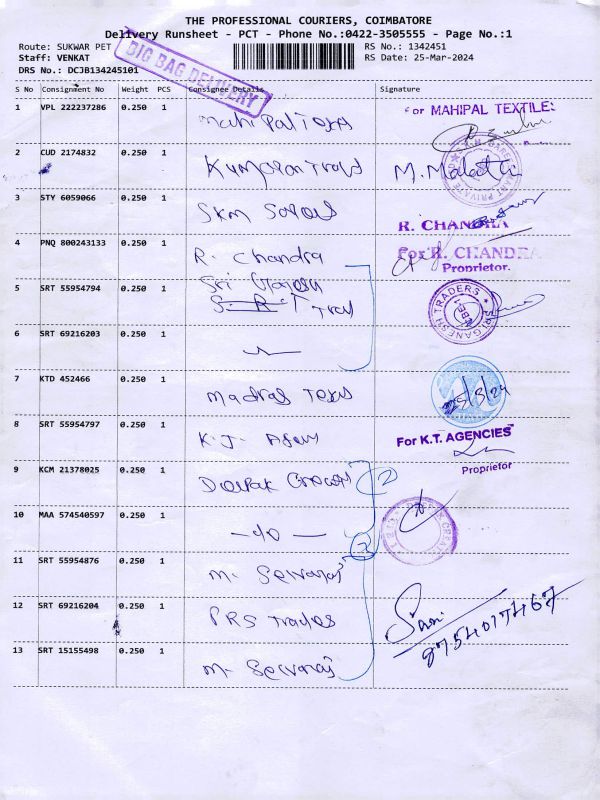 THE PROFESSIONAL COURIERS, COIMBATORE
Delivery Runsheet - PCT - Phone No.:0422-3505555 - Page No.:1
Route: SUKWAR PET RS No.: 1342451
Staff: VENKAT RS Date: 25-Mar-2024
DRS No.: DCJB134245101
BIG BAG DELIVERY
S No Consignment No Weight PCS Consignee Details Signature
1 VPL 222237286 0.250 1 Mahipal Texs For MAHIPAL TEXTILES
2 CUD 2174832 0.250 1 Kumaran Trad M. Malathi
3 STY 6059066 0.250 1 SKM R. CHANDRA
4 PNQ 800243133 0.250 1 R. Chandra For R. CHANDRA
Proprietor.
5 SRT 55954794 0.250 1 Sri Trad SRI GANESH TRADERS
6 SRT 69216203 0.250 1
7 KTD 452466 0.250 1 Madras Texs 25/3/24
8 SRT 55954797 0.250 1 K.T. For K.T. AGENCIES
Proprietor
9 KCM 21378025 0.250 1 Deepak 2
10 MAA 574540597 0.250 1 -do-
11 SRT 55954876 0.250 1 M. Selvaraj
12 SRT 69216204 0.250 1 PRS Trades
13 SRT 15155498 0.250 1 M. Selvaraj